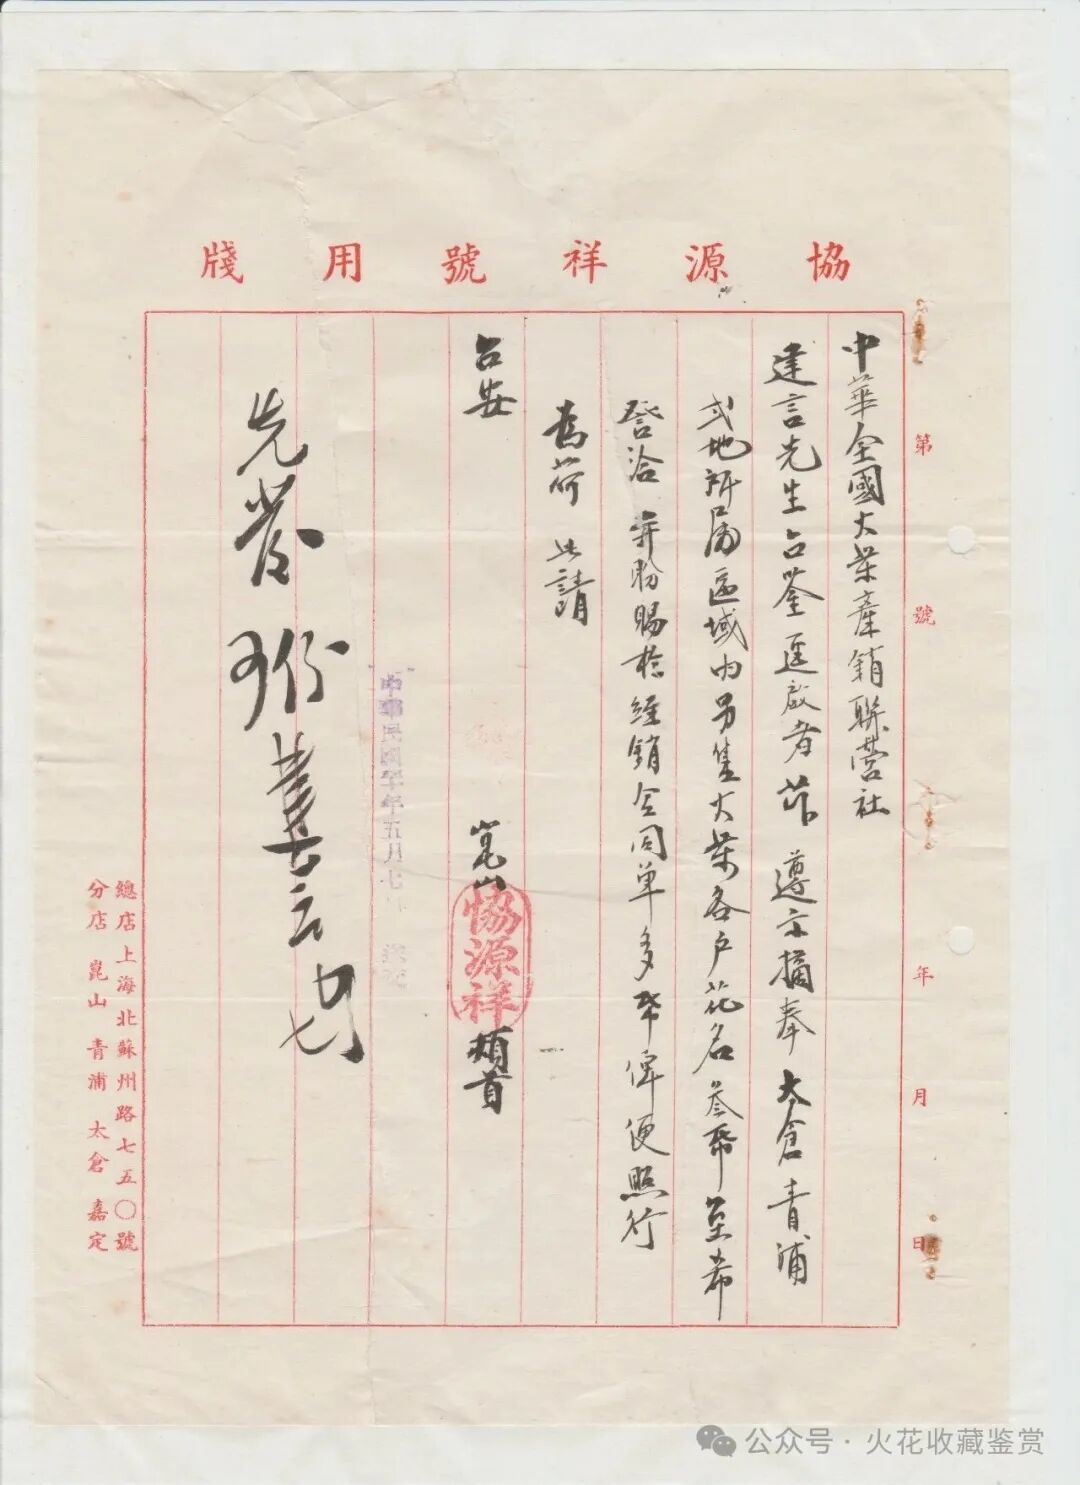 協源祥號用牋
第 號 年 月 日
中華全國火柴產銷聯營社
建言先生台鑒逕啟者茲遵示摘奉太倉青浦
弍地所屬區域內另售火柴各戶花名叁帋至希
詧洽并盼賜捡經銷合同單多帋俾便照行
為荷此請
台安
崑山
協源祥
頓首
中華民國 年五月七
先發 份
總店上海北蘇州路七五〇號
分店 崑山 青浦 太倉 嘉定
公众号·火花收藏鉴赏